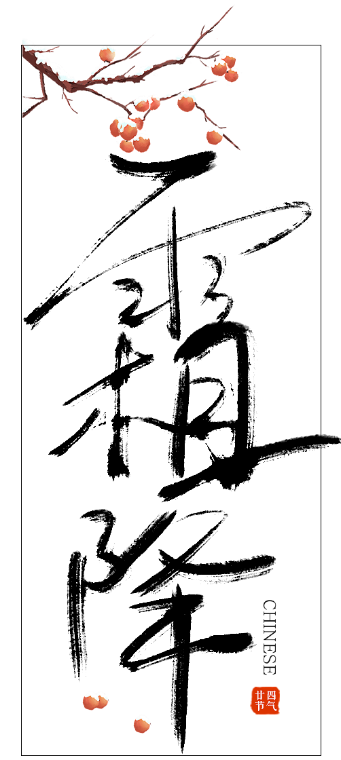 霜降
CHINESE
廿四
节气